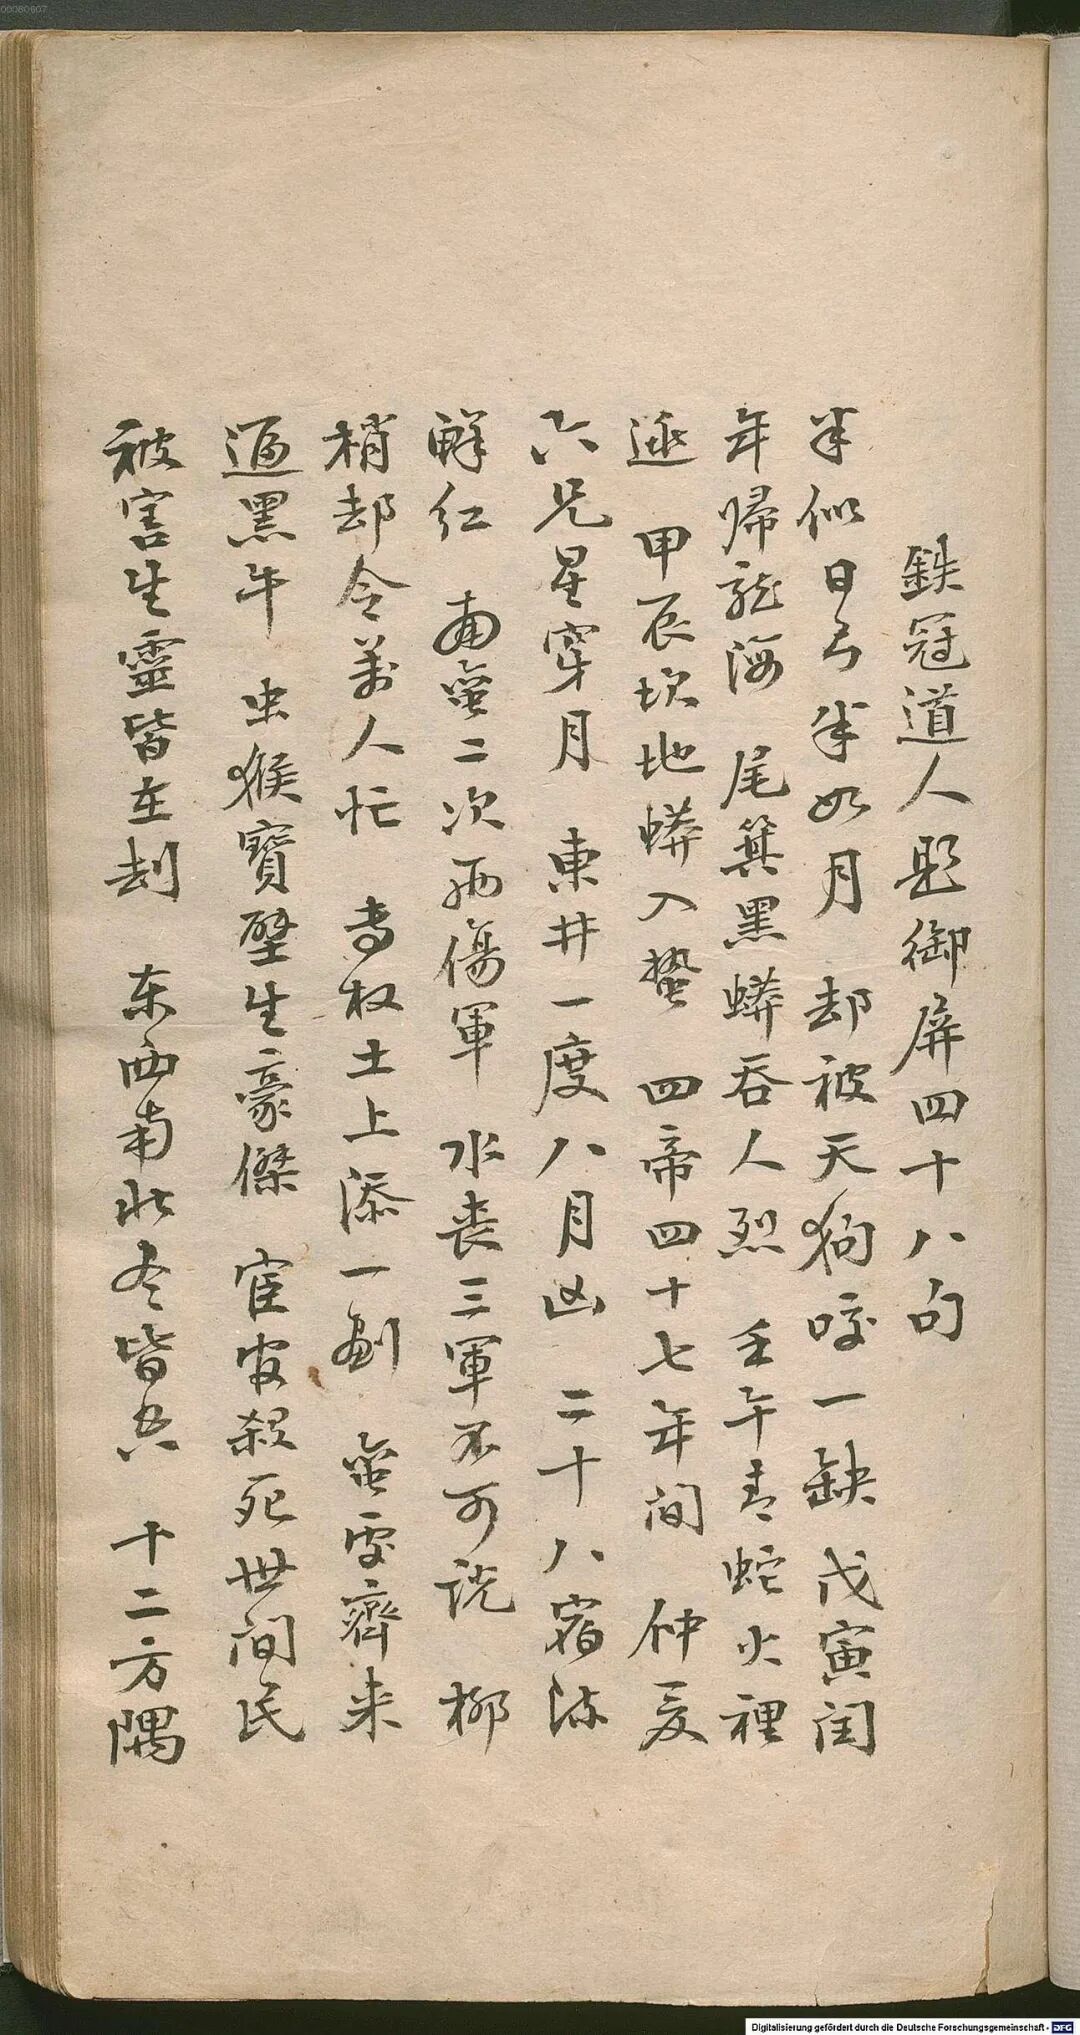 鉄冠道人題御屏四十八句
半似日兮半如月 却被天狗咬一缺 戊寅閏
年歸龍海 尾箕黑蟒吞人烈 壬午青蛇火裡
逃 甲辰坎地蟒入蟄 四帝四十七年間 仲夏
六兄星穿月 東井一度八月凶 二十八宿流
鮮紅 南蛮二次两傷軍 水喪三軍不可説 柳
梢却令万人忙 专权土上添一剑 蛮雯齊来
逼黑牛 虫猴寶壁生豪傑 宦官殺死世间民
被害生靈皆在刦 东西南北冬皆 十二方隅
00080607
Digitalisierung gefördert durch die Deutsche Forschungsgemeinschaft - DFG